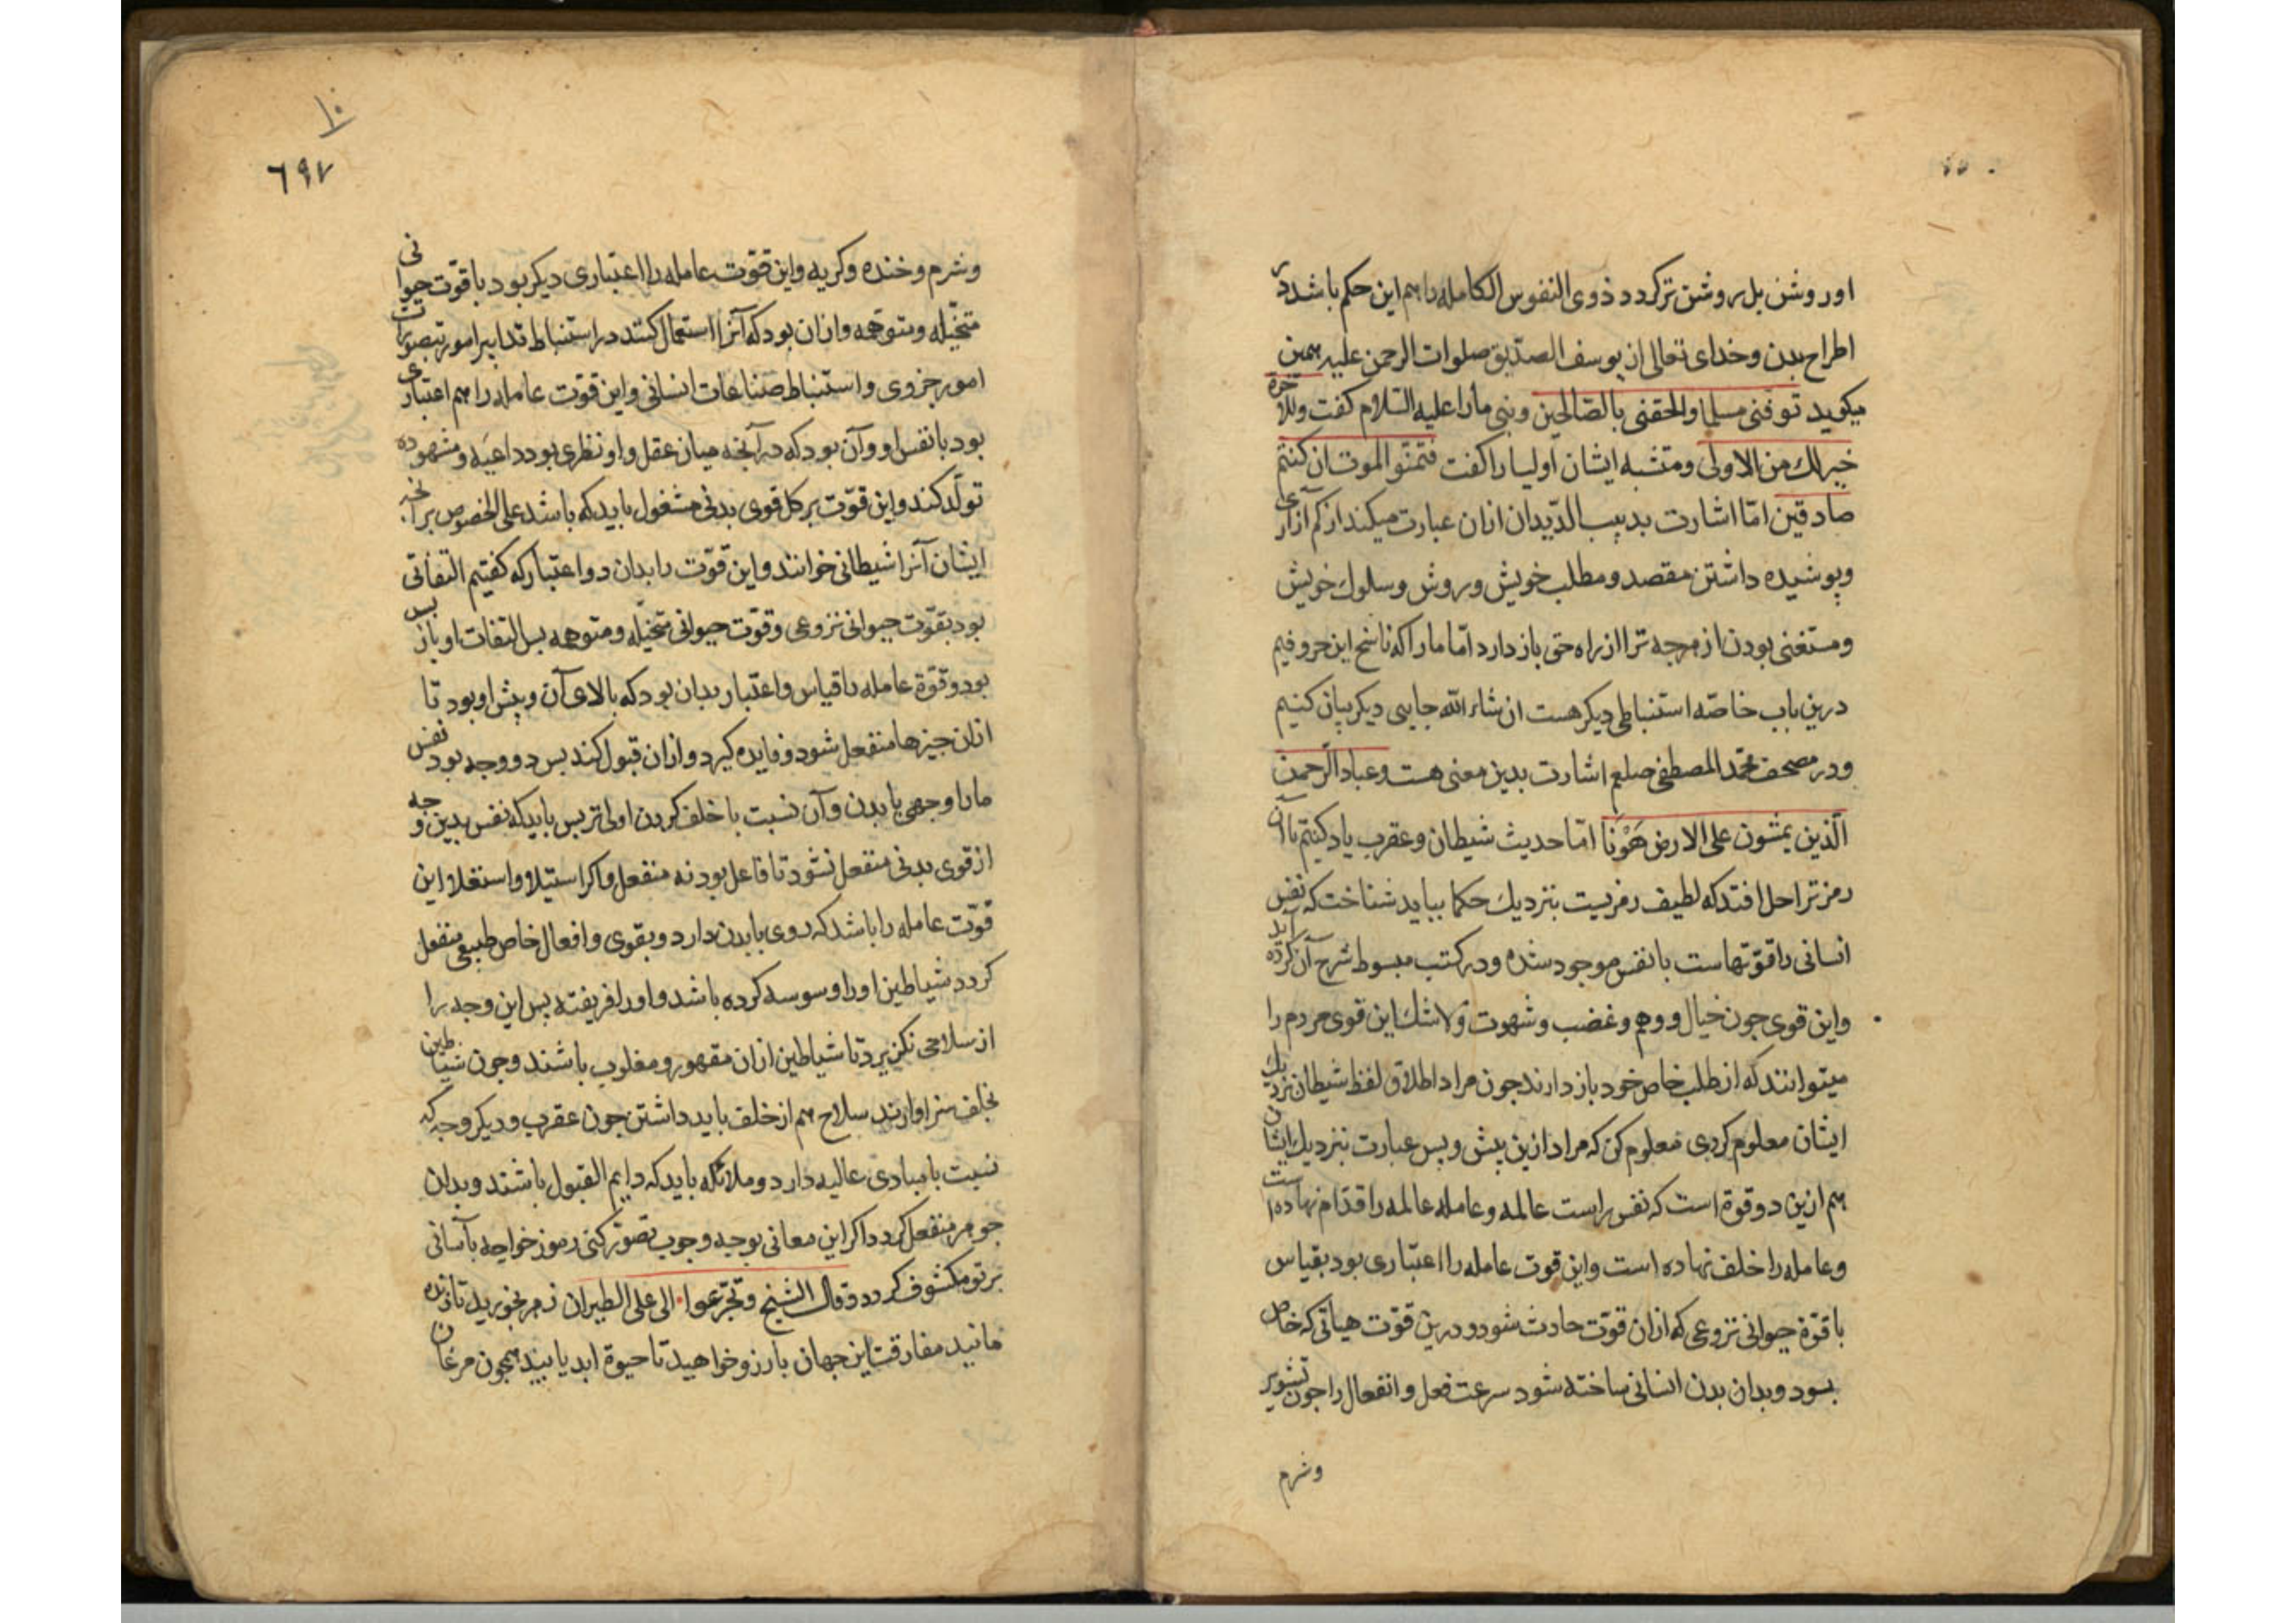 اور وشن بل روشن ترکردد ذوی النفوس الکامله را هم این حکم باشد در
اطراح بدن وخدای تعالی از یوسف الصدّیق صلوات الرحمن علیه همین
میکوید توفنی مسلما والحقنی بالصّالحین ونبی ما را علیه السّلام کفت وللاخرة
خیر لك من الاولی ومتشبه ایشان اولیا را کفت فتمنّوا الموت ان کنتم
صادقین امّا اشارت بدبیب الدّیدان ازان عبارت میکند از کم آزاری
وپوشیده داشتن مقصد ومطلب خویش وروش وسلوك خویش
ومستغنی بودن از هرجه ترا از راه حق باز دارد امّا ما را که ناسخ این حروفیم
درین باب خاصّه استنباطی دیکر هست ان شاء الله جایی دیکر بیان کنیم
ودر مصحف محمّد المصطفی صلعم اشارت بدین معنی هست وعباد الرّحمن
الّذین یمشون علی الارض هَوْنَا امّا حدیث شیطان وعقرب یاد کنیم تا آن
رمز ترا حل افتد که لطیف رمزیست بنزدیك حکما بباید شناخت که نفس
انسانی را قوّتهاست با نفس موجود شده ودر کتب مبسوط شرح آن کرده آید
واین قوی جون خیال ووهم وغضب وشهوت ولاشك این قوی مردم را
میتوانند که از طلب خاص خود باز دارند جون مراد اطلاق لفظ شیطان نزدیك
ایشان معلوم کردی معلوم کن که مراد ازین پیش وپس عبارت بنزدیك ایشان
هم ازین دو قوة است که نفس راست عالمه وعامله عالمه را قدّام نهاده است
وعامله را خلف نهاده است واین قوت عامله را اعتباری بود بقیاس
با قوّة حیوانی نزوعی که ازان قوّت حادث شود ودرین قوّت هیاتی که خاص
بود وبدان بدن انسانی ساخته شود سرعت فعل وانفعال را جون تشویر
وشرم
٦٩٧
وشرم وخنده وکریه واین قوّت عامله را اعتباری دیکر بود با قوّت حیوانی
متخیّله ومتوهمه وازان بود که آنرا استعمال کنند در استنباط تدابیر امور تبصورات
امور جزوی واستنباط صناعات انسانی واین قوّت عامله را هم اعتباری
بود با نفس او وآن بود که در آنجه میان عقل واو نظری بود داعیَه ومشهوده
تولّد کند واین قوّت بر کل قوی بدنی مشغول باید که باشد علی الخصوص برآنجه
ایشان آنرا شیطانی خوانند واین قوّت را بدان دو اعتبار که کفتیم التفاتی
بود بقوّت حیوانی نزوعی وقوّت حیوانی متخیّله ومتوهمه بس التفات او باز پس
بود وقوّة عامله را قیاس واعتبار بدان بود که بالای آن وپیش او بود تا
ازان جیزها منفعل شود وفایده کیرد وازان قبول کند بس دو وجه بود نفس
ما را وجهی با بدن وآن نسبت با خلف کردن اولی تر بس باید که نفس بدین وجه
از قوی بدنی منفعل نشود تا فاعل بود نه منفعل واکر استیلا واستعلا این
قوّت عامله را باشد که روی با بدن دارد وبقوی وافعال خاص طبیعی منفعل
کردد شیاطین او را وسوسه کرده باشد واو را فریفته پس این وجه را
از سلاحی نکزیرد تا شیاطین ازان مقهور ومغلوب باشند وجون شیاطین
بخلف سزاوارند سلاح هم از خلف باید داشتن جون عقرب ودیکر وجه که
نسبت با مبادی عالیه دارد وملائکه باید که دایم القبول باشند وبدان
جوهر منفعل کردد اکر این معانی بوجه وجوب تصوّر کنی رموز خواجه بآسانی
بر تو مکشوف کردد وقال الشیخ وتجرّعوا الی علی الطیران زهر بخورید تا زنده
مانید مفارقت این جهان بآرزو خواهید تا حیوة ابد یابید همجون مرغان